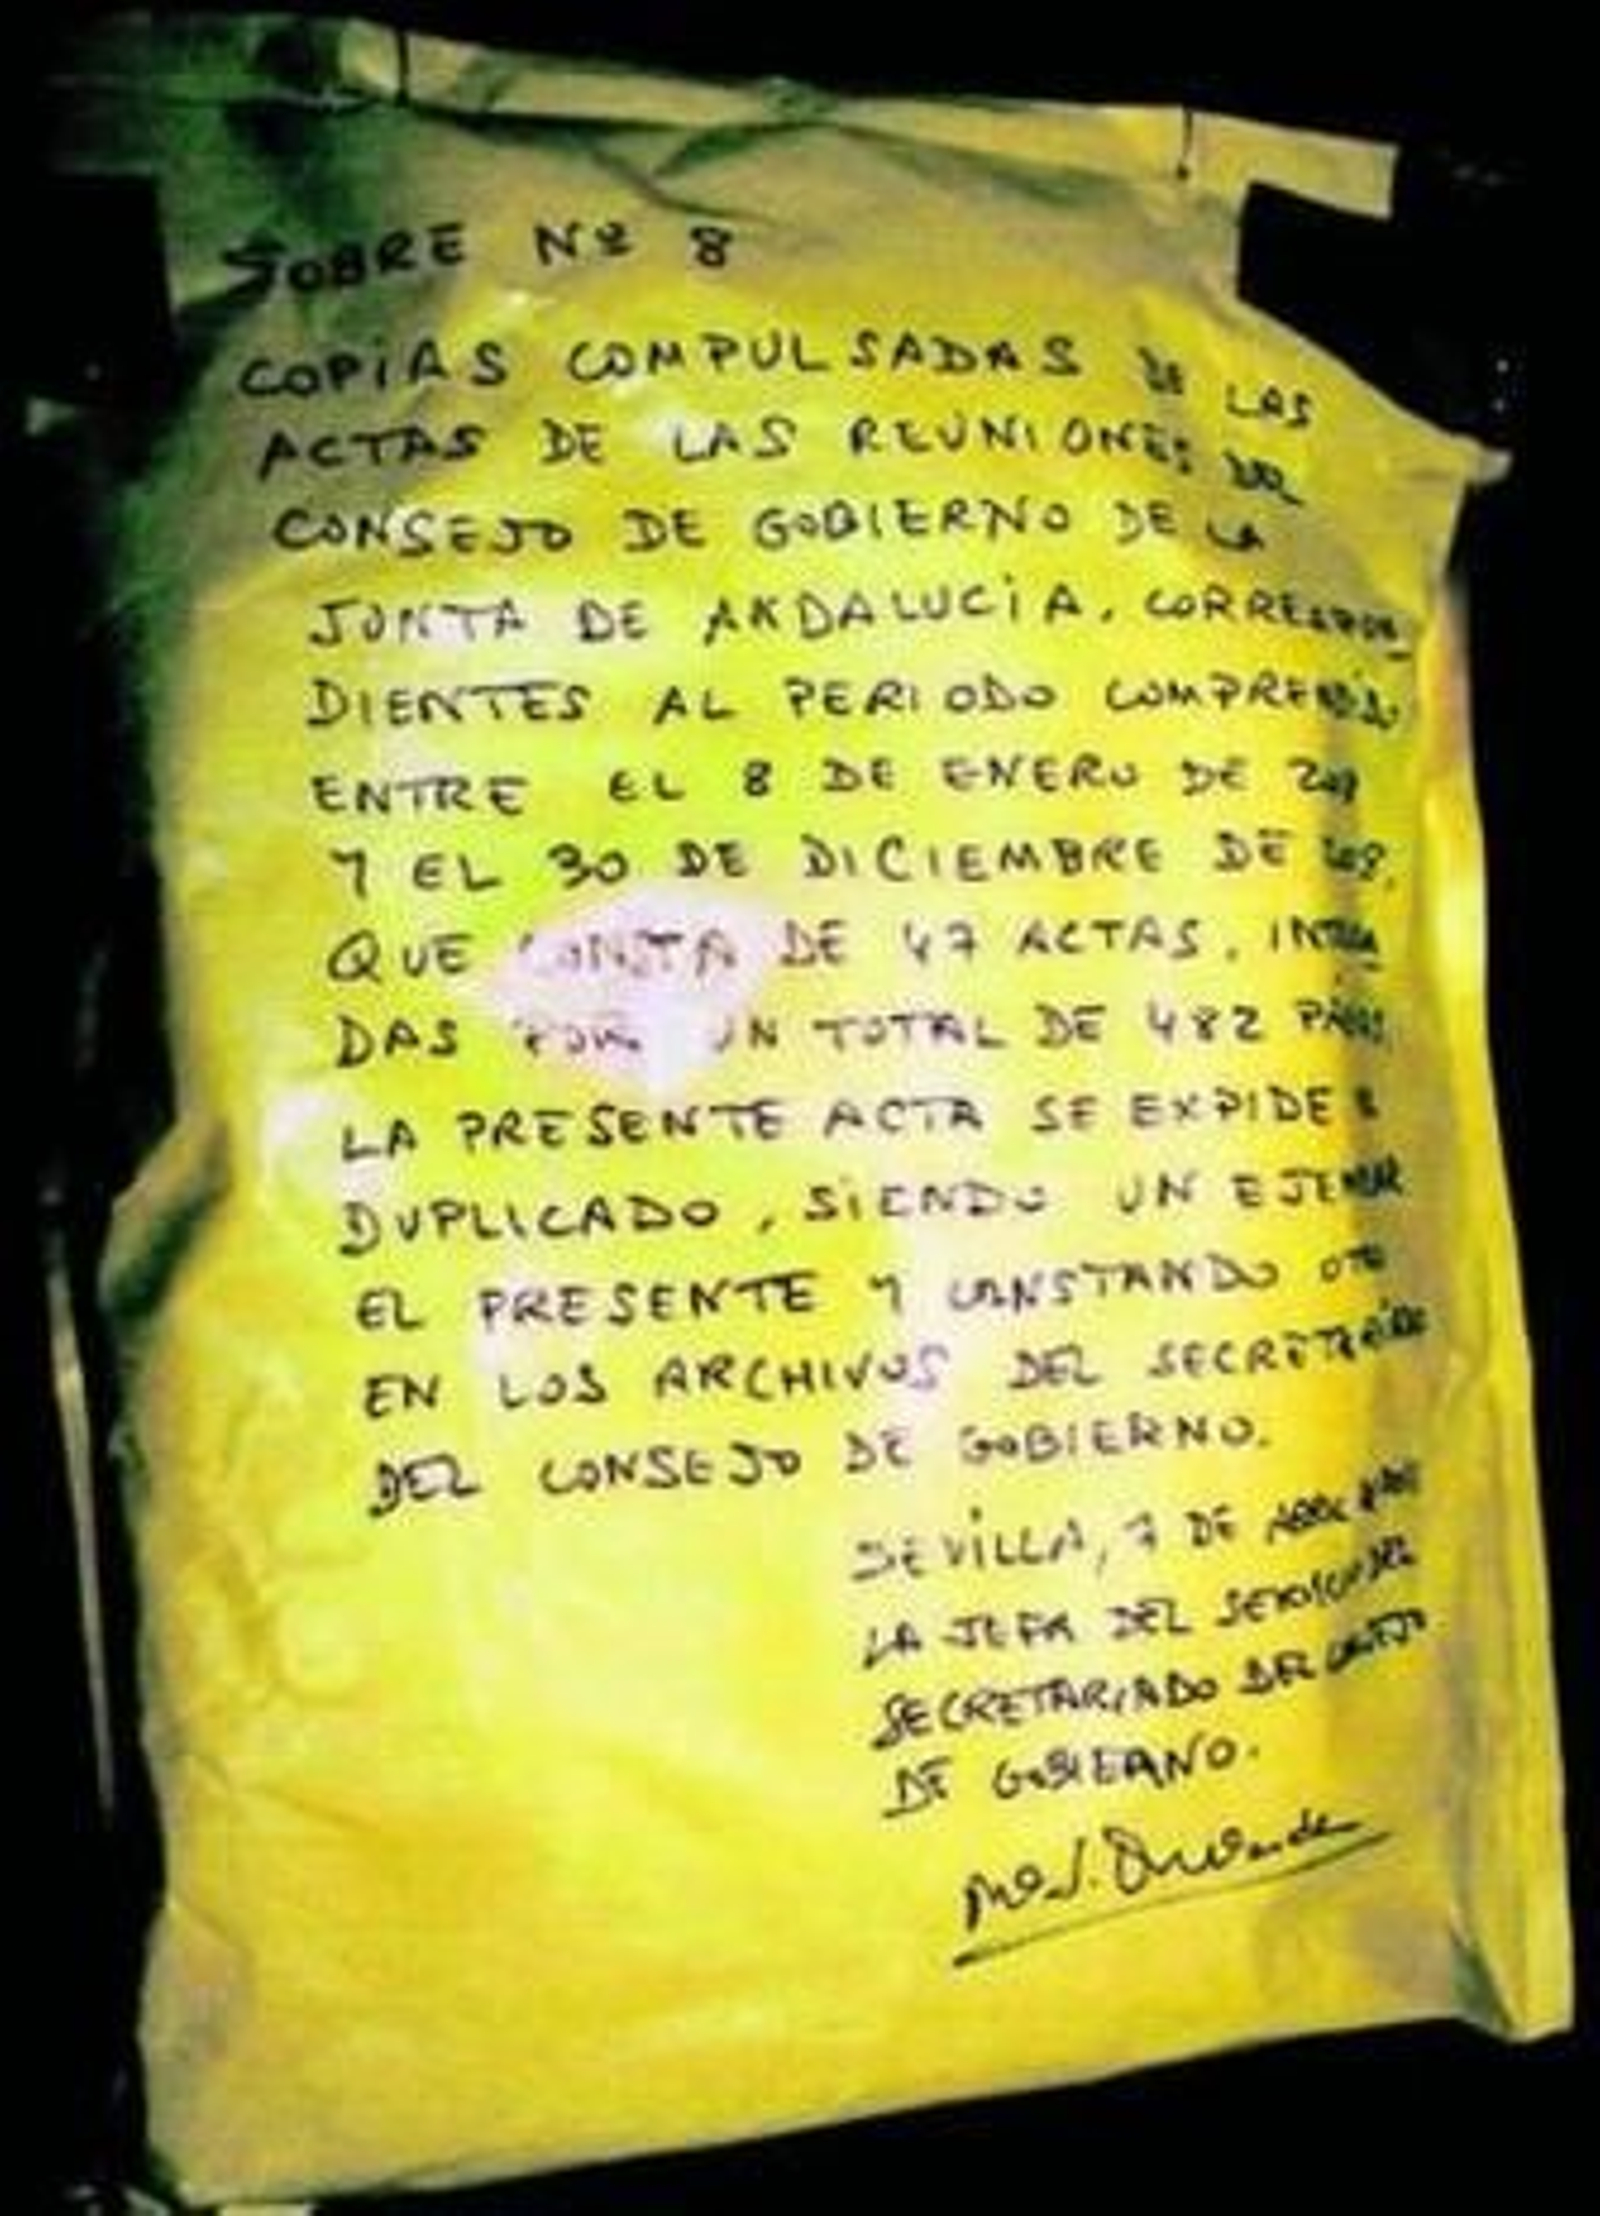 SOBRE Nº 8
COPIAS COMPULSADAS DE LAS
ACTAS DE LAS REUNIONES DEL
CONSEJO DE GOBIERNO DE LA
JUNTA DE ANDALUCIA, CORRESPON-
DIENTES AL PERIODO COMPRENDIDO
ENTRE EL 8 DE ENERO DE
Y EL 30 DE DICIEMBRE DE
QUE CONSTA DE 47 ACTAS,
DAS POR UN TOTAL DE 482
LA PRESENTE ACTA SE EXPIDE
DUPLICADO, SIENDO UN EJEMPLAR
EL PRESENTE Y CONSTANDO OTRO
EN LOS ARCHIVOS DEL SECRETARIADO
DEL CONSEJO DE GOBIERNO.
SEVILLA, 7 DE ABRIL
LA JEFA DEL SERVICIO DEL
SECRETARIADO DEL CONSEJO
DE GOBIERNO.